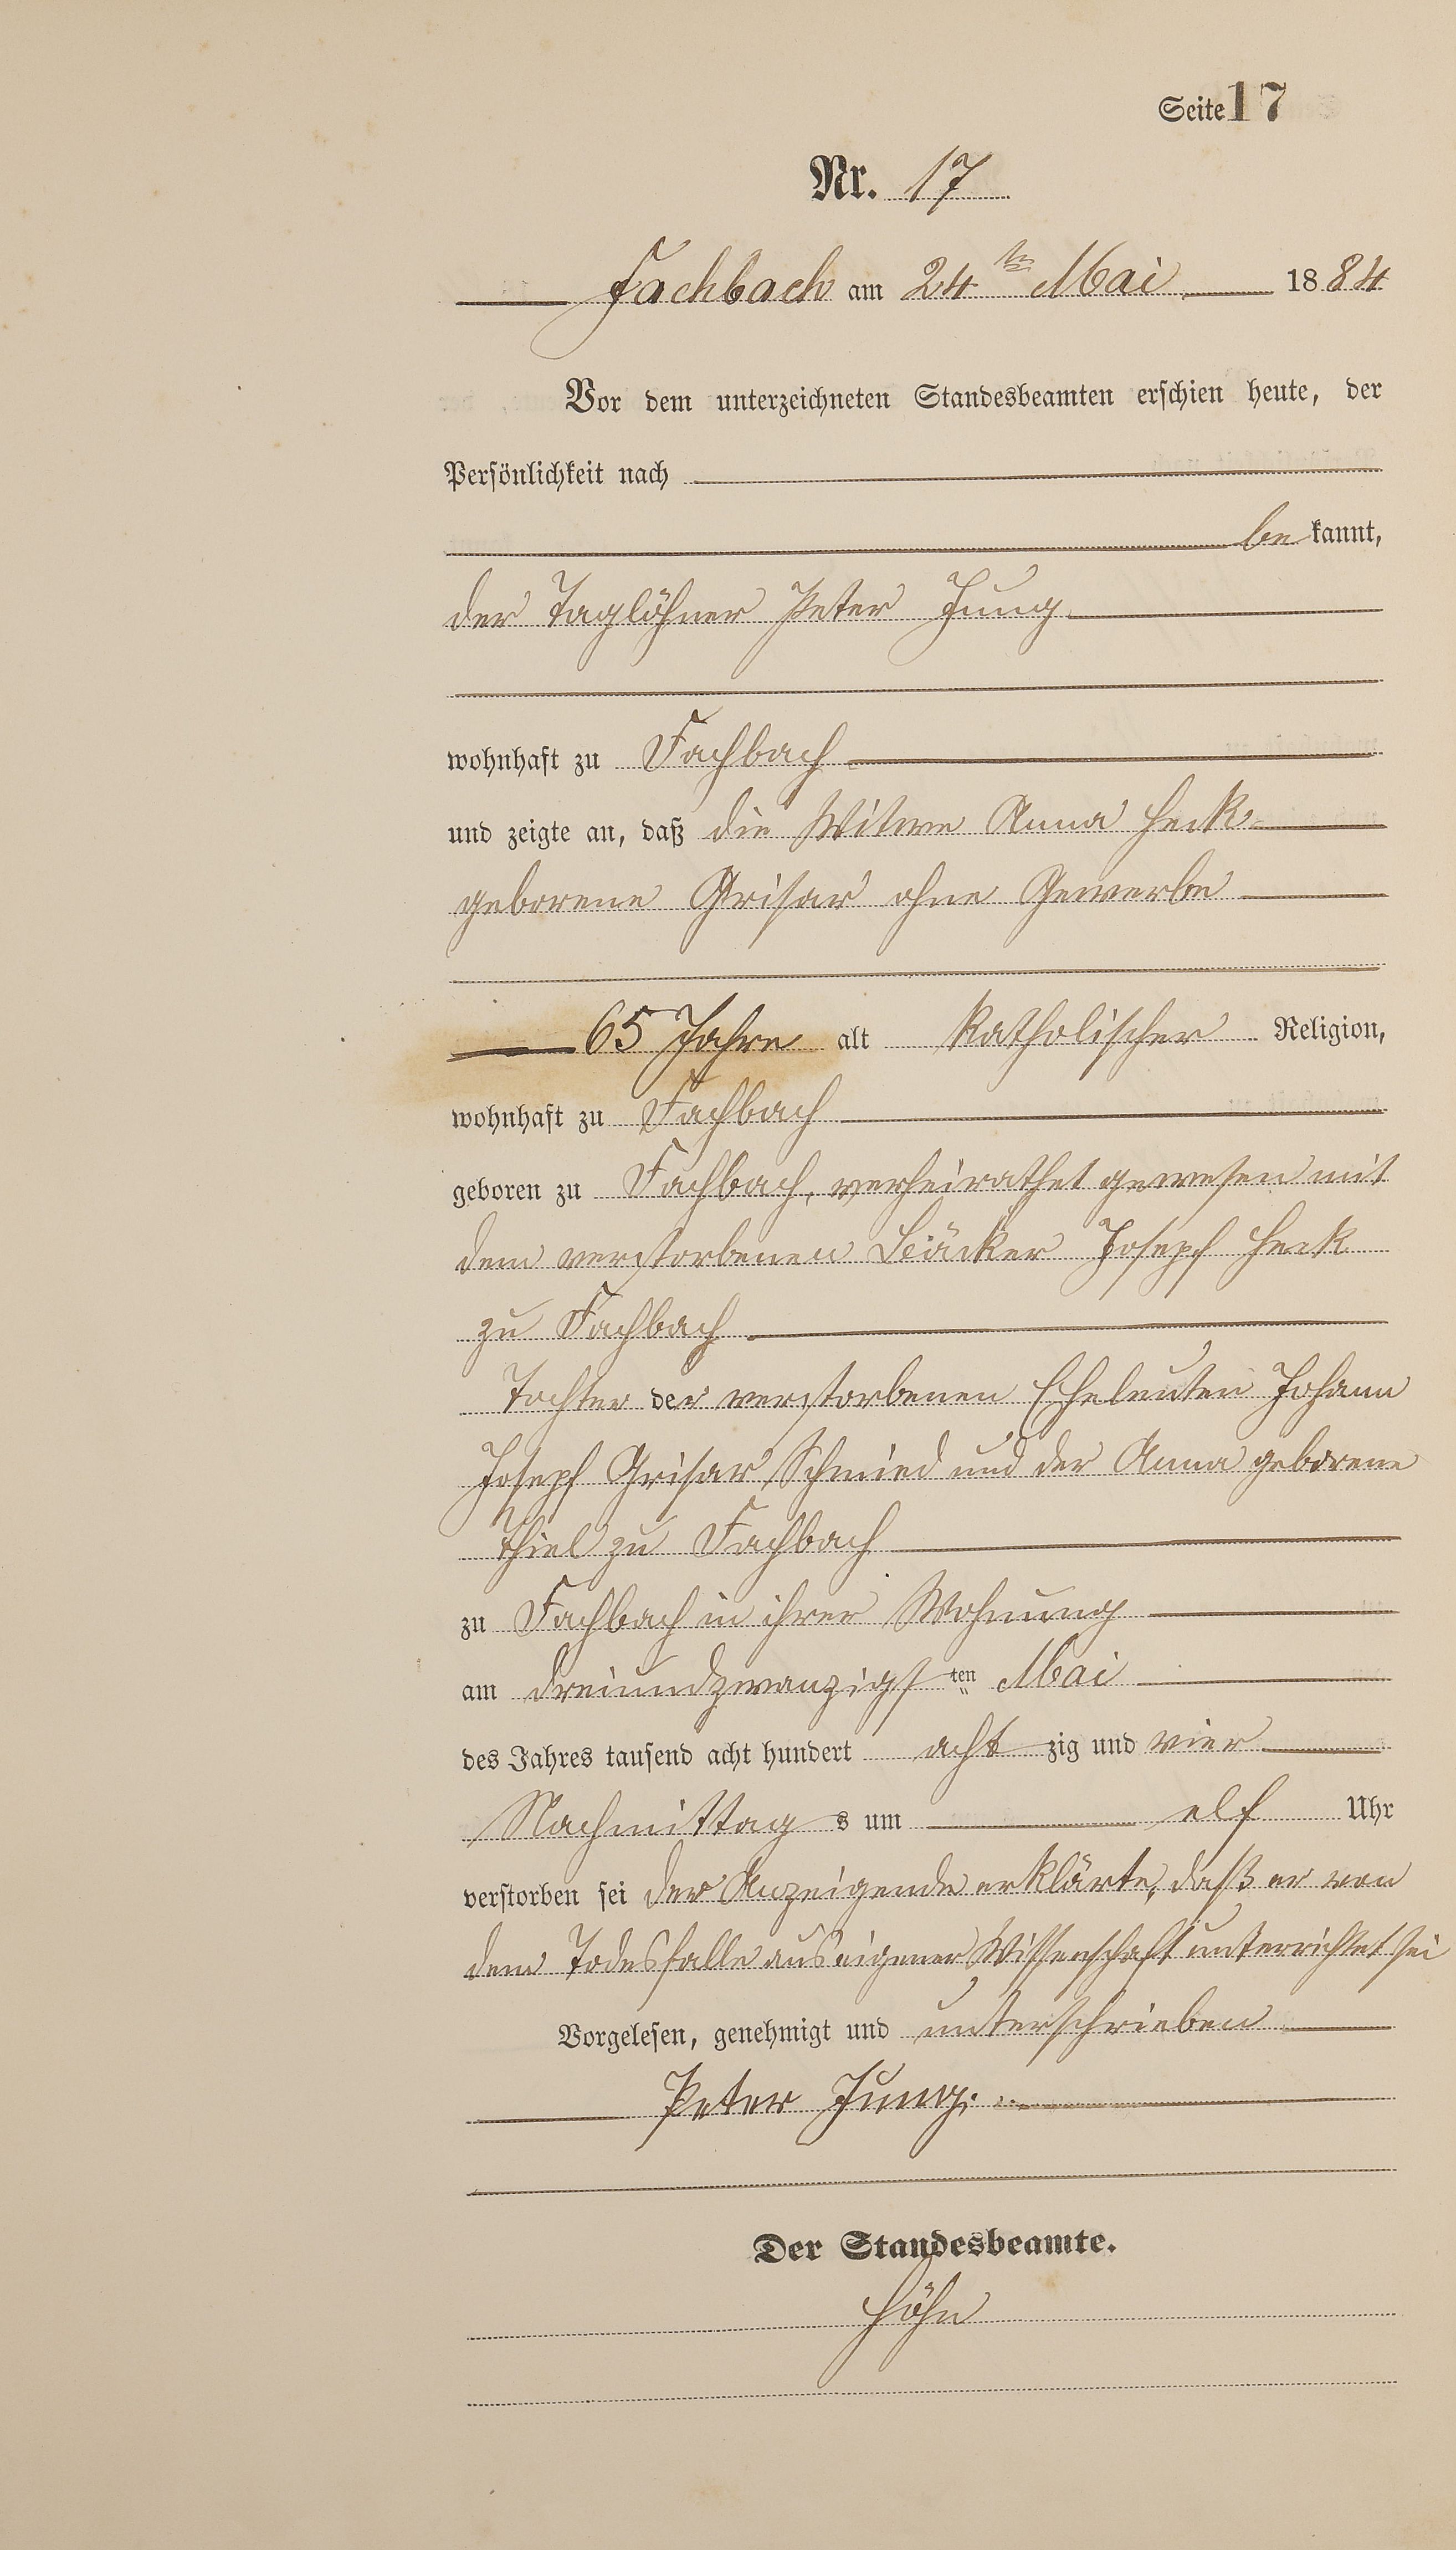 Seite 17
Nr. 17
Fachbach am 24ten Mai 1884
Vor dem unterzeichneten Standesbeamten erschien heute, der
Persönlichkeit nach
be kannt,
der Taglöhner Peter Jung
wohnhaft zu Fachbach
und zeigte an, daß die Witwe Anna Heck
geborene Grisar ohne Gewerbe
65 Jahre alt katholischer Religion,
wohnhaft zu Fachbach
geboren zu Fachbach, verheirathet gewesen mit
dem verstorbenen Bäcker Joseph Heck
zu Fachbach
Tochter der verstorbenen Eheleuten Johann
Joseph Grisar Schmied und der Anna geborene
Thiel zu Fachbach
zu Fachbach in ihrer Wohnung
am dreiundzwanzigsten Mai
des Jahres tausend acht hundert acht zig und vier
Nachmittag s um elf Uhr
verstorben sei der Anzeigende erklärte, daß er von
dem Todesfalle aus eigener Wissenschaft unterrichtet sei
Vorgelesen, genehmigt und unterschrieben
Peter Jung.
Der Standesbeamte.
Höhn